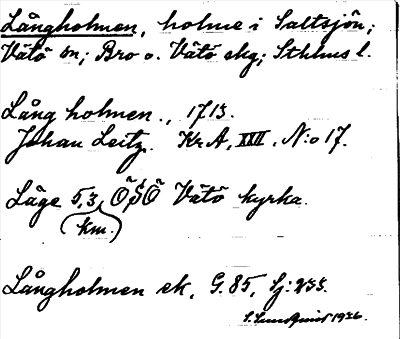 Långholmen, holme i Saltsjön;
Vätö sn; Bro o. Vätö skg; Sthlms l.
Lång holmen., 1713.
Johan Leitz. Kr A, XXII, N:o 17.
Läge 5,3 ÖSÖ Vätö kyrka.
(km.)
Långholmen ek, G. 85, Sj: 233.
S. Lundquist 1936.